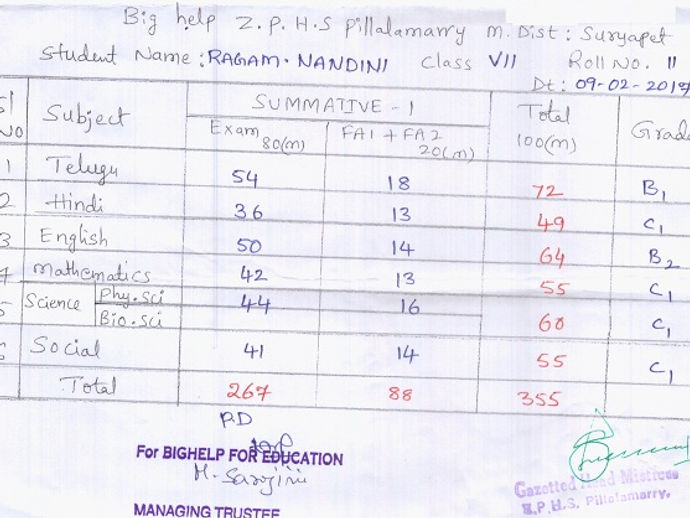 Big help Z.P.H.S Pillalamarry m. Dist: Suryapet
Student Name: RAGAM. NANDINI Class VII Roll No. 11
Dt: 09-02-2017
Sl No Subject SUMMATIVE - 1 Total 100(m) Grade
Exam 80(m) FA1 + FA2 20(m)
1 Telugu 54 18 72 B1
2 Hindi 36 13 49 C1
3 English 50 14 64 B2
4 mathematics 42 13 55 C1
5 Science Phy.sci Bio.sci 44 16 60 C1
6 Social 41 14 55 C1
Total 267 88 355
P.D
For BIGHELP FOR EDUCATION
M. Sarojini
MANAGING TRUSTEE
Gazetted Head Mistress
Z.P.H.S. Pillalamarry.